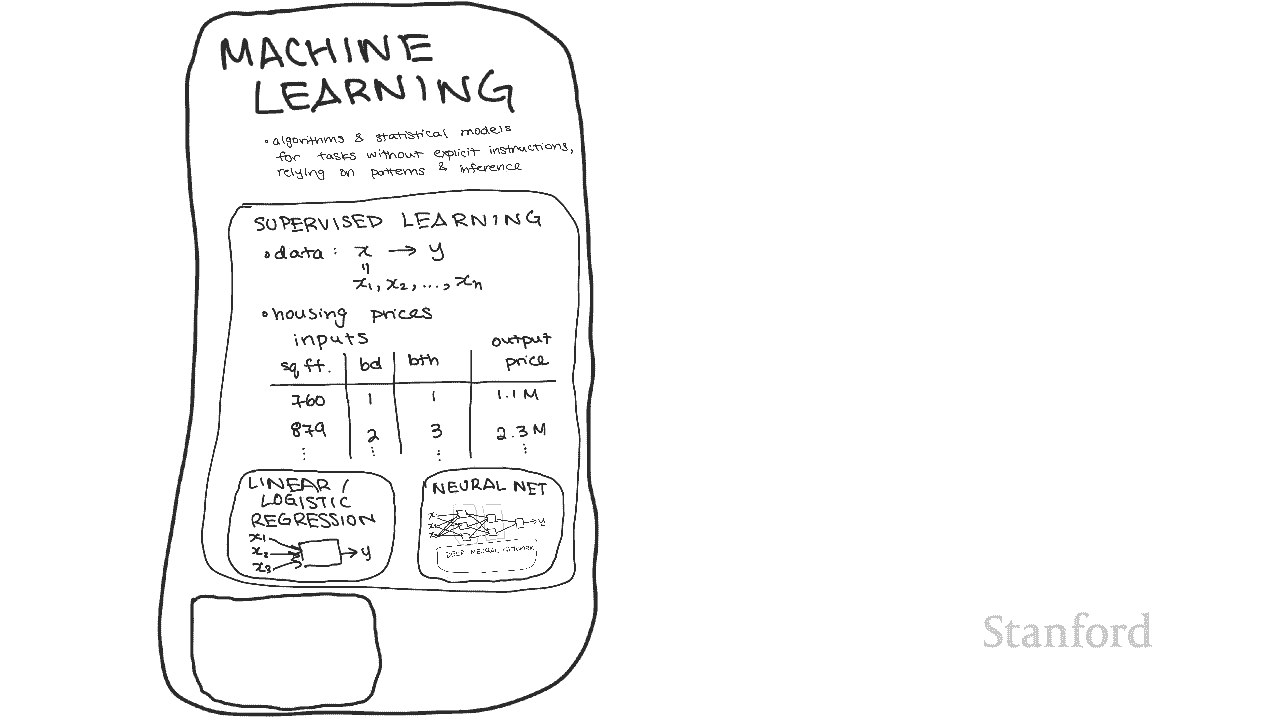 MACHINE
LEARNING
• algorithms & statistical models
for tasks without explicit instructions,
relying on patterns & inference
SUPERVISED LEARNING
• data : x → y
=
x₁, x₂, ..., xₙ
• housing prices
inputs output
sq ft. bd bth price
760 1 1 1.1 M
879 2 3 2.3 M
⋮ ⋮ ⋮ ⋮
LINEAR /
LOGISTIC
REGRESSION
x₁
x₂ → y
x₃
NEURAL NET
x₁
x₂ y
x₃
DEEP NEURAL NETWORK
Stanford